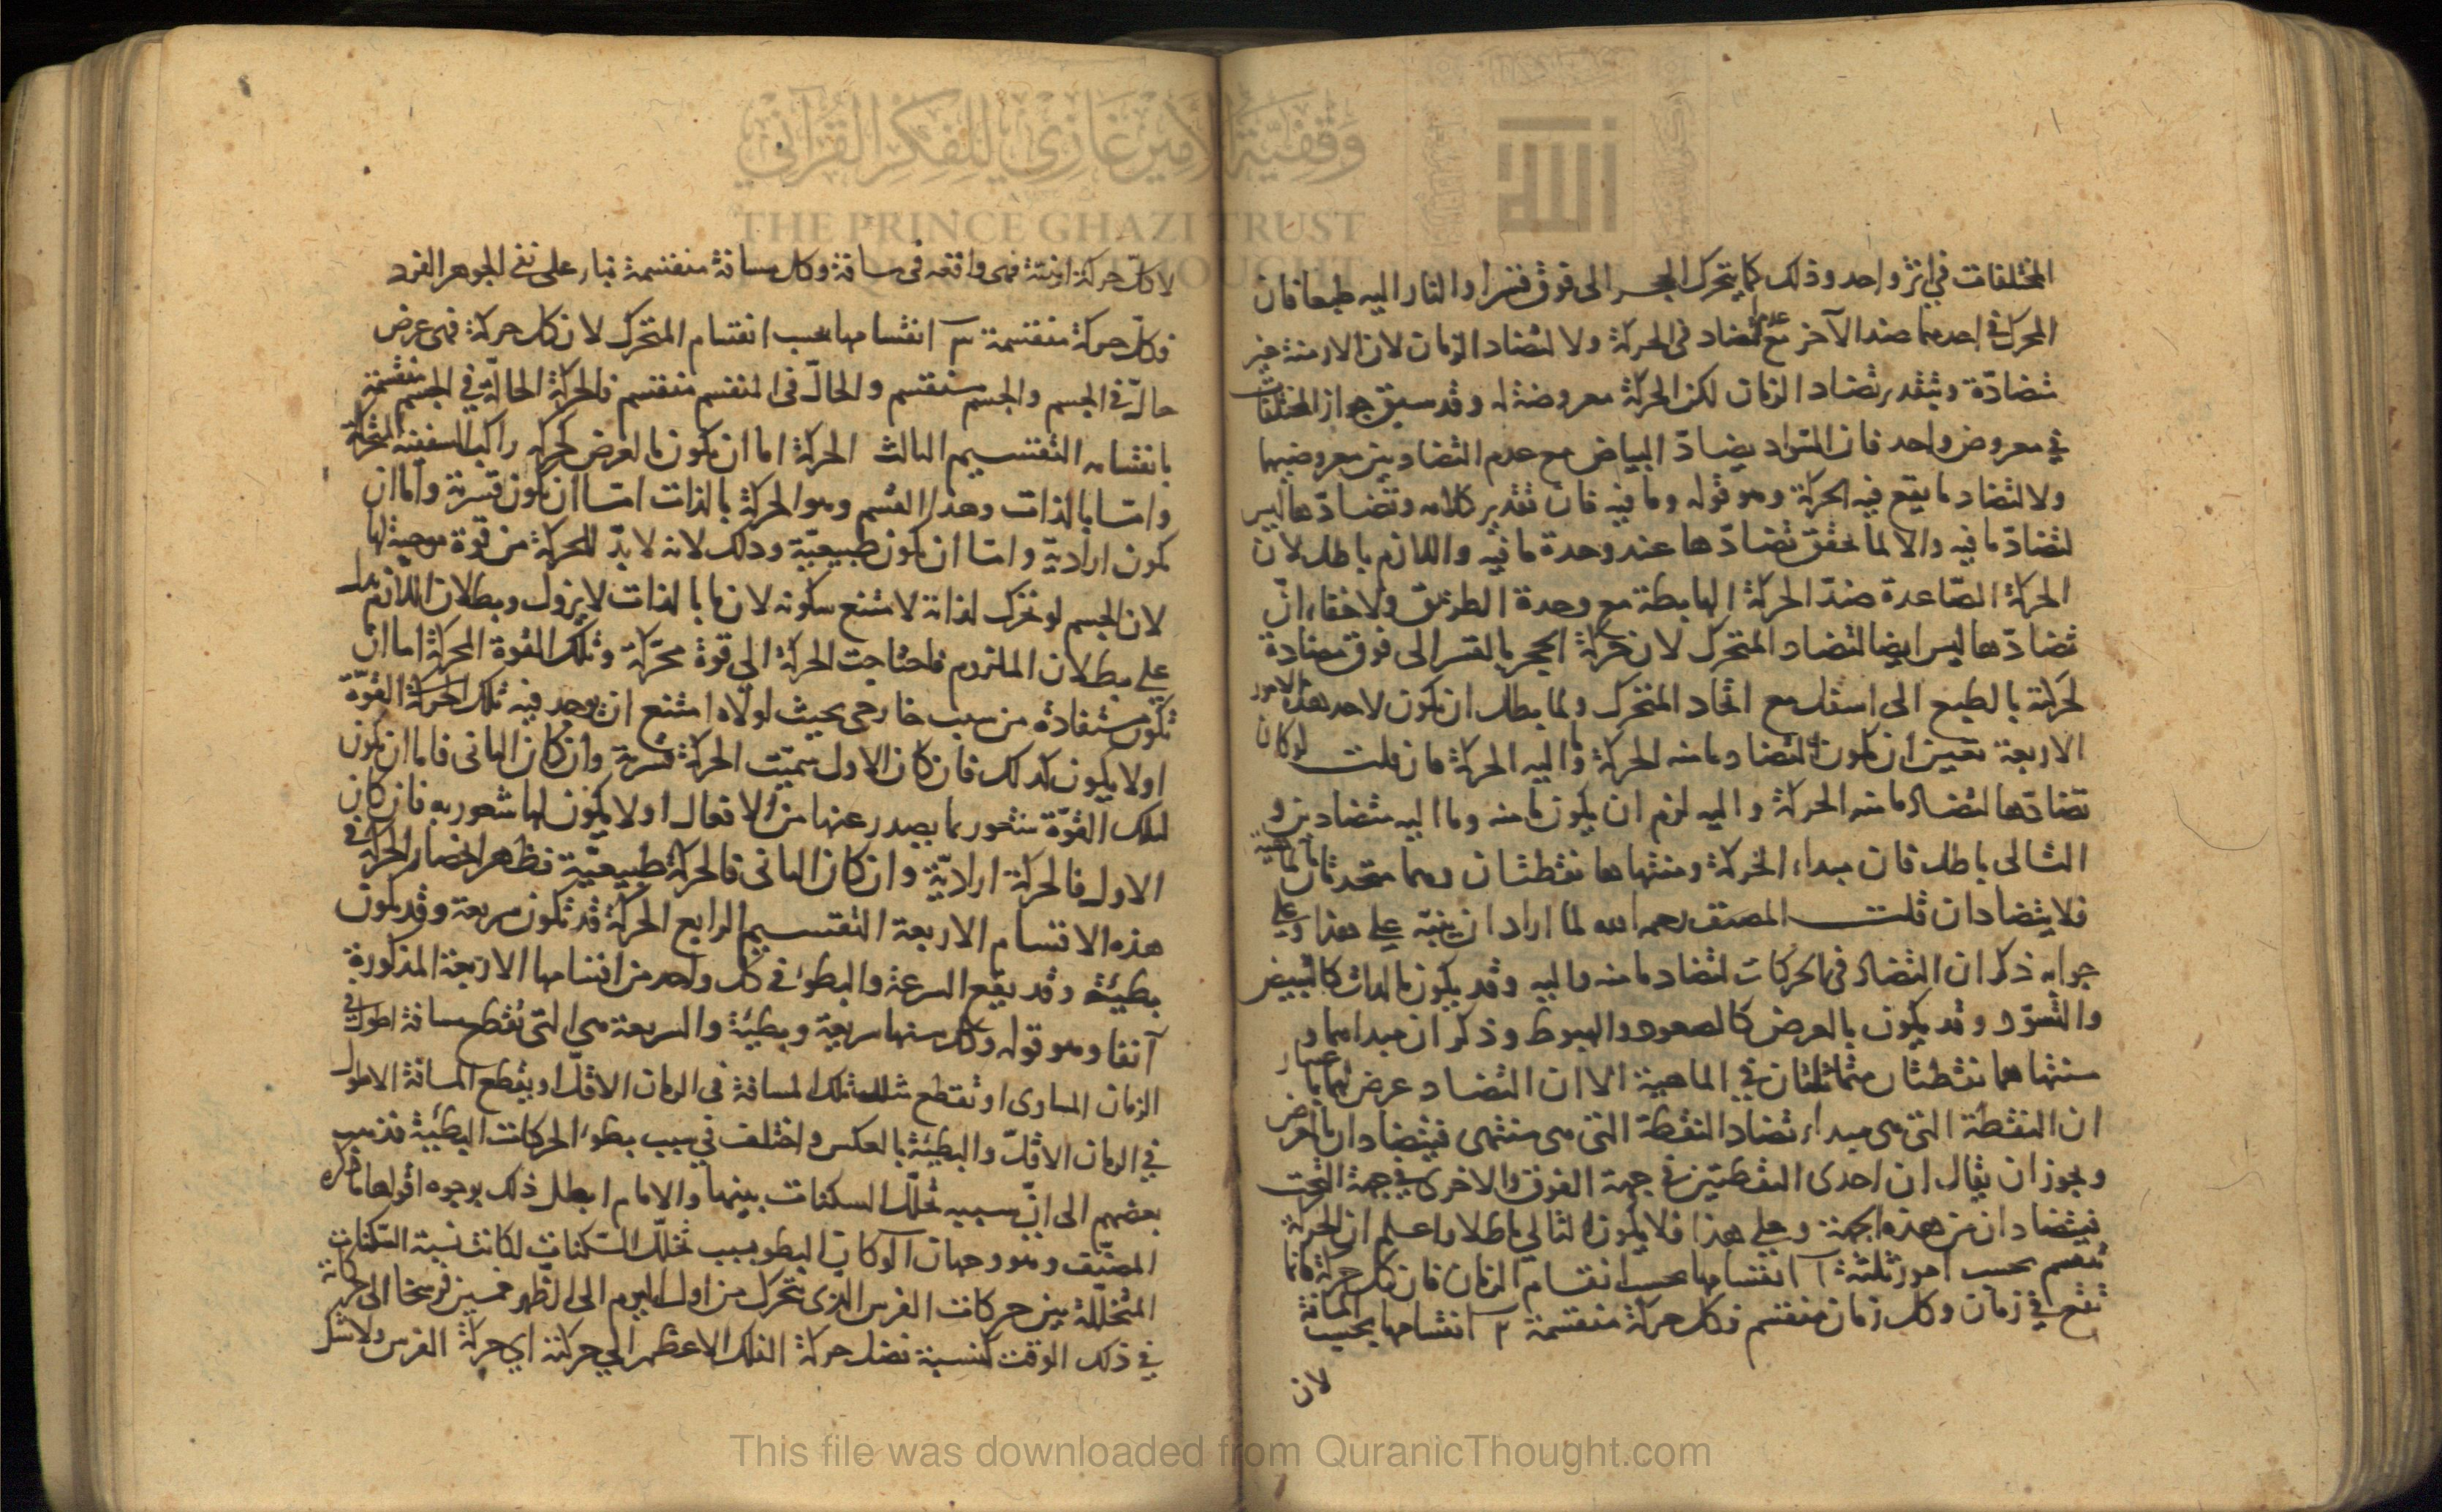 المختلفات في اثر واحد وذلك كما يتحرك الحجر الى فوق قسرا والنار اليه طبعا فان
المحرك في احدهما ضد الآخر مع عدم التضاد في الحركة ولا لتضاد الزمان لان الازمنة غير
متضادّة وبتقدير تضاد الزمان لكن الحركة معروضة له وقد سبق جواز المختلفات
في معروض واحد فان السّواد يضادّ البياض مع عدم التضاد بين معروضيهما
ولا لتضاد ما يقع فيه الحركة وهو قوله وما فيه فان تقدير كلامه وتضادّها ليس
لتضادّ ما فيه والا لما تحقق تضادّها عند وحدة ما فيه واللازم باطل لان
الحركة الصّاعدة ضدّ الحركة الهابطة مع وحدة الطريق ولا خفاء انّ
تضادّها ليس ايضا لتضاد المتحرك لان حركة الحجر بالقسر الى فوق مضادة
لحركته بالطبع الى اسفل مع اتحاد المتحرك ولما بطل ان تكون لاحد هذه الامور
الاربعة تعين ان تكون لتضاد ما منه الحركة وما اليه الحركة فان قلت لو كان
تضادّها لتضاد ما منه الحركة واليه لزم ان يكون ما منه وما اليه متضادين و
التالى باطل فان مبداء الحركة ومنتهاها نقطتان وهما متحدتان بالماهية
فلا يتضادان قلت المصنف رحمه الله لما اراد ان ينبّه على هذا وعلى
جوابه ذكر ان التضاد في الحركات لتضاد ما منه واليه وقد يكون بالذات كالتبيض
والتسوّد وقد يكون بالعرض كالصعود والهبوط وذكر ان مبداهما و
منتهاهما نقطتان متماثلتان في الماهية الا ان التضاد عرض لهما باعتبار
ان النقطة التي هي مبداء تضاد النقطة التي هي منتهى فيتضادان بالعرض
ويجوز ان يقال ان احدى النقطتين في جهة الفوق والاخرى في جهة التحت
فيتضادان من هذه الجهة وعلى هذا فلا يكون التالي باطلا واعلم ان الحركة
تنقسم بحسب امور ثلثة آ انقسامها بحسب انقسام الزمان فان كل حركة فانما
تقع في زمان وكل زمان منقسم فكل حركة منقسمة ٢ انقسامها بحسب المسافة
لان
لان كلّ حركة اينية فهي واقعه في مسافة وكل مسافة منقسمة بناء على نفى الجوهر الفرد
فكلّ حركة منقسمة ٣ انقسامها بحسب انقسام المتحرك لان كل حركة فهى عرض
حالّ في الجسم والجسم منقسم والحالّ في المنقسم منقسم فالحركة الحالّة في الجسم منقسمة
بانقسامه التقسيم الثالث الحركة اما ان تكون بالعرض كحركة راكب السفينة المتحركة
وامّا بالذات وهذا القسم وهو الحركة بالذات امّا ان تكون قسرية وامّا ان
تكون ارادية وامّا ان تكون طبيعيّة وذلك لانه لا بدّ للحركة من قوة موجبة لها
لان الجسم لو تحرك لذاته لامتنع سكونه لان ما بالذات لا يزول وبطلان اللازم يدل
على بطلان الملزوم فاحتاجت الحركة الى قوة محرّكة وتلك القوة المحركة اما ان
تكون مستفادة من سبب خارجى بحيث لولاه امتنع ان يوجد فيه تلك القوّة
اولا يكون كذلك فان كان الاول سمّيت الحركة قسرية وان كان الثانى فاما ان تكون
لتلك القوّة شعور بما يصدر عنها من الافعال اولا يكون لها شعور به فان كان
الاول فالحركة اراديّة وان كان الثانى فالحركة طبيعيّة فظهر انحصار الحركة في
هذه الاقسام الاربعة التقسيم الرابع الحركة قد تكون سريعة وقد تكون
بطيئة وقد يقع السرعة والبطؤ في كل واحد من اقسامها الاربعة المذكورة
آنفا وهو قوله وكل منها سريعة وبطيئة والسريعة هي التي تقطع مسافة اطول في
الزمان المساوى او تقطع مثل تلك المسافة في الزمان الاقلّ او يقطع المسافة الاطول
في الزمان الاقلّ والبطيئة بالعكس واختلف في سبب بطوء الحركات البطيئة فذهب
بعضهم الى انّ سببه تخلّل السكنات بينها والامام ابطل ذلك بوجوه اقواها ما ذكره
المصنّف وهو وجهان آ لو كان البطو بسبب تخلّل السّكنات لكانت نسبة السّكنات
المتخلّلة بين حركات الفرس الّذى يتحرك من اول اليوم الى الظّهر خمسين فرسخا الى حركاته
في ذلك الوقت كنسبة فضل حركة الفلك الاعظم الى حركته اي حركة الفرس ولا شك
وقفية الأمير غازي للفكر القرآني
THE PRINCE GHAZI TRUST
This file was downloaded from QuranicThought.com